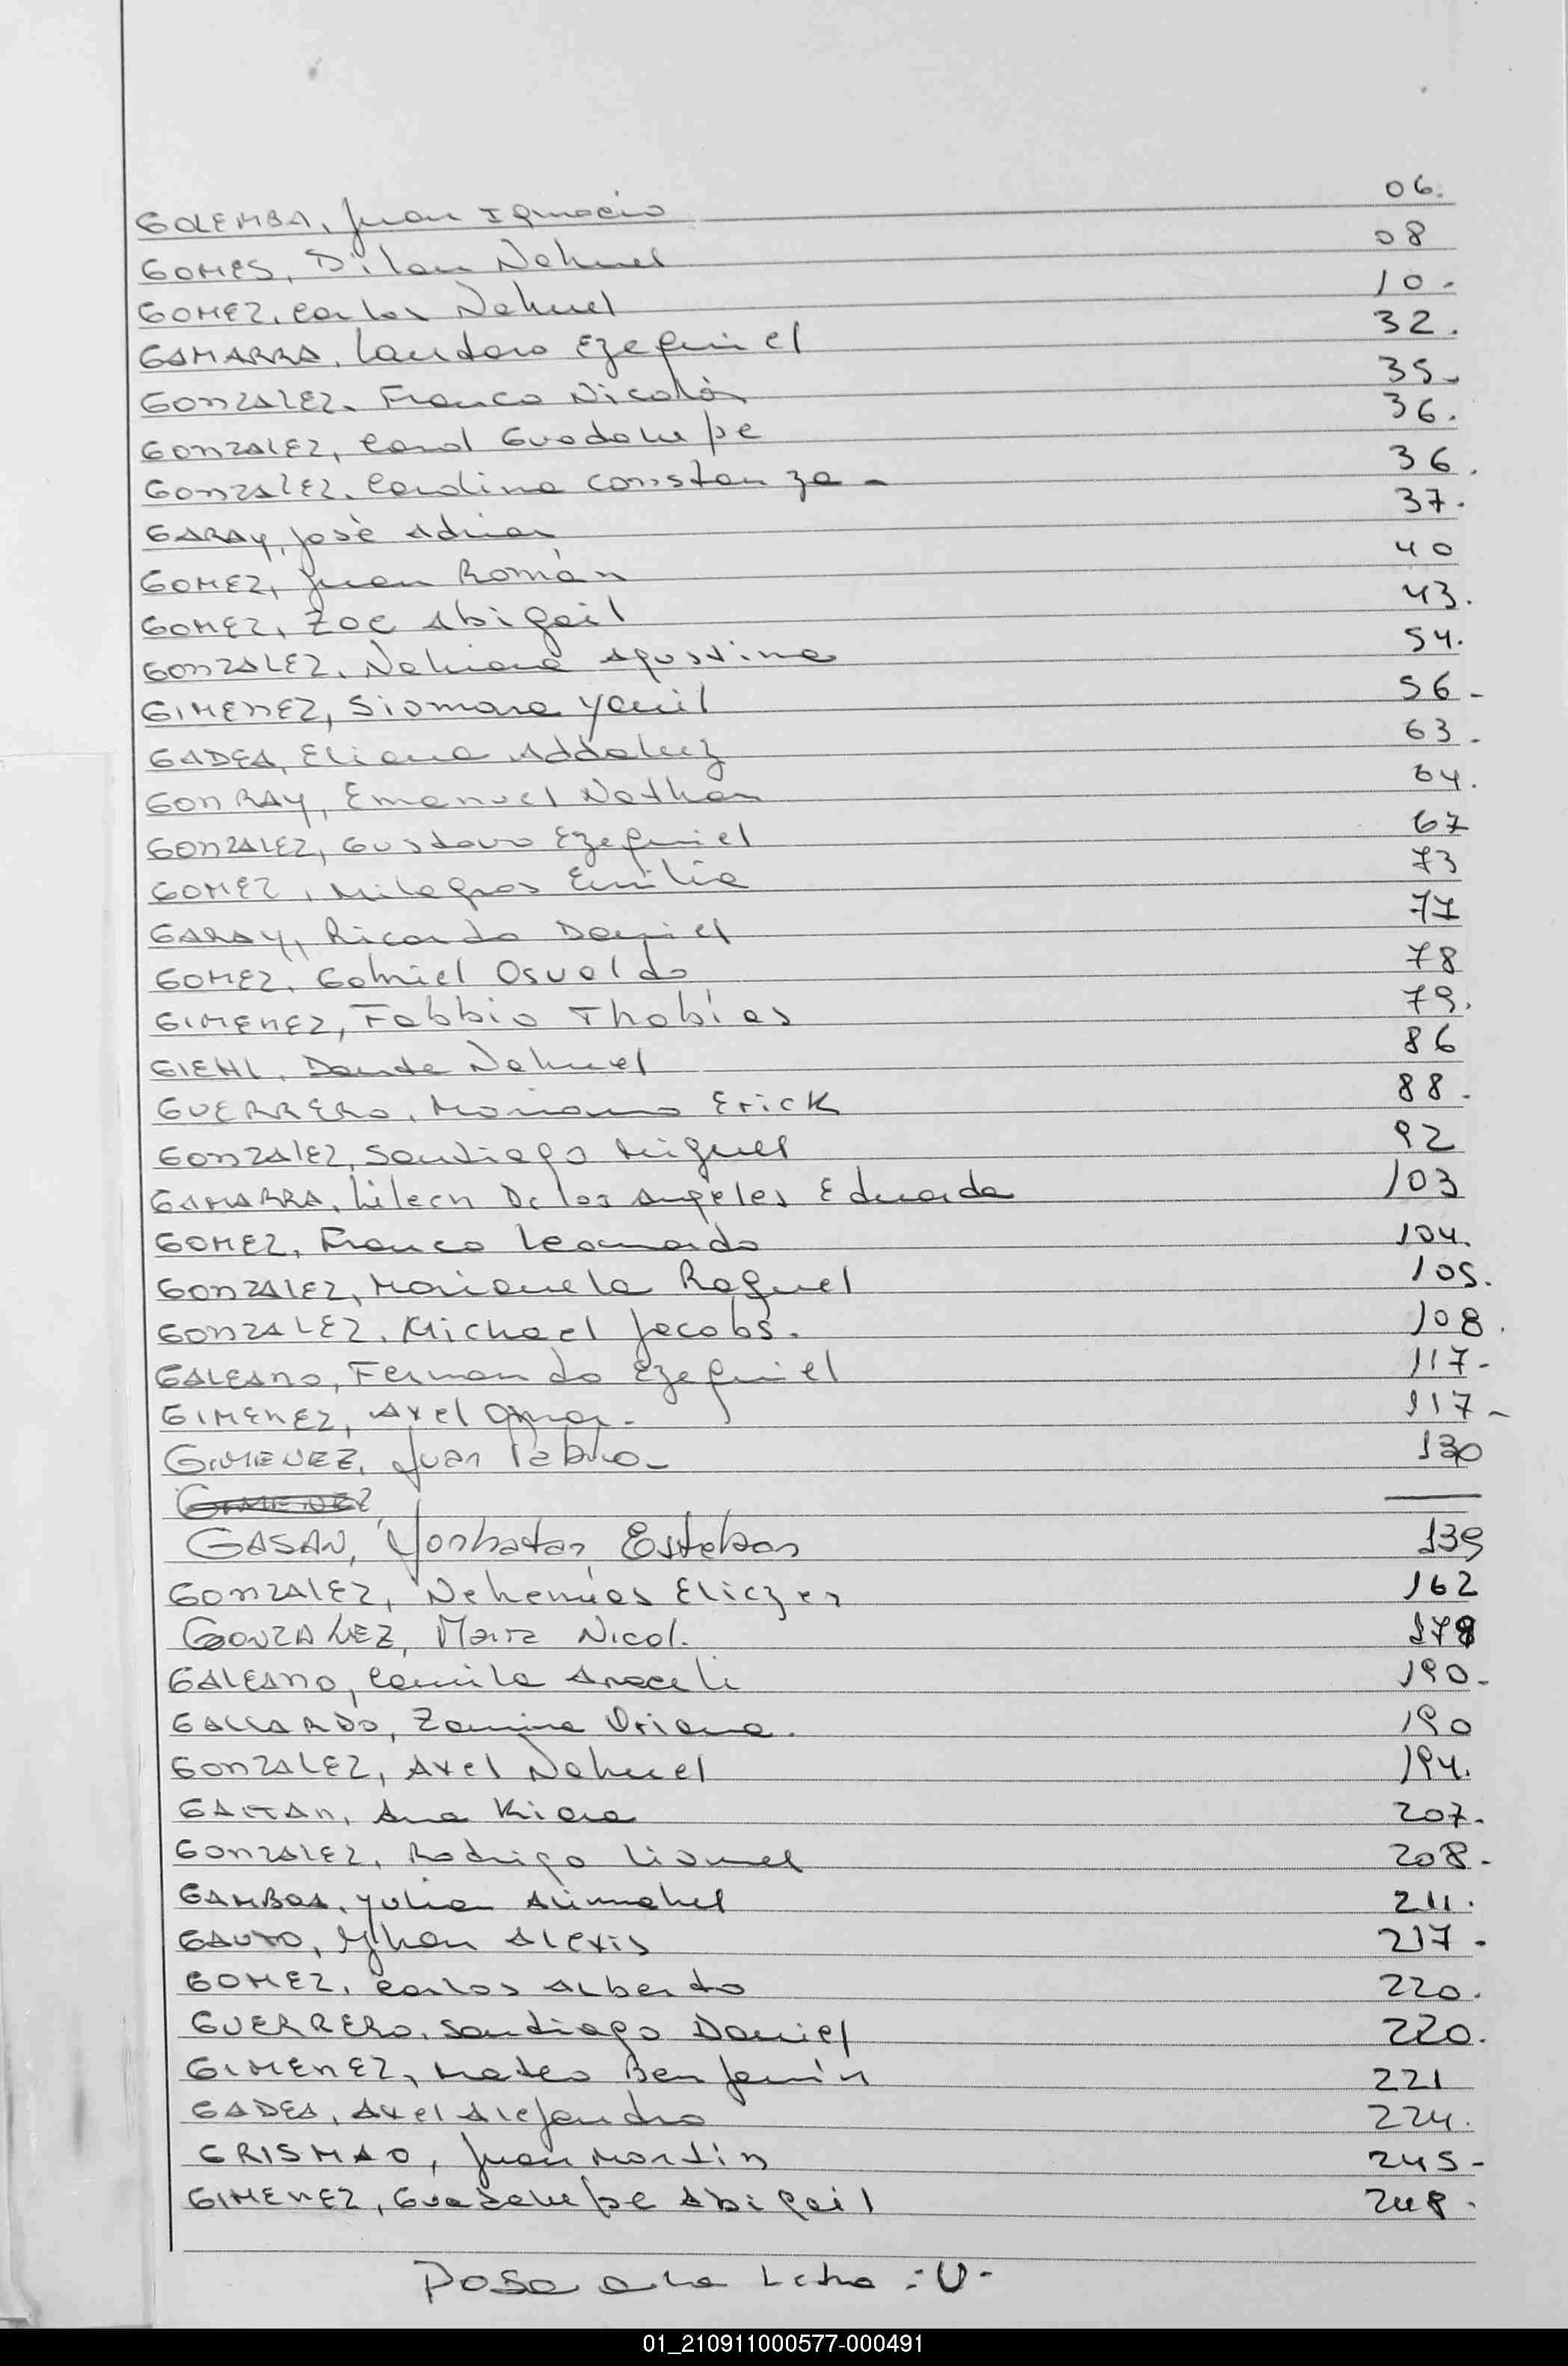 GOLEMBA, Juan Ignacio 06.
GOMES, Dilan Nahuel 08
GOMEZ, Carlos Nahuel 10.
GAMARRA, Lautaro Ezequiel 32.
GONZALEZ, Franco Nicolás 35-
GONZALEZ, Carol Guadalupe 36.
GONZALEZ, Carolina Constanza - 36.
GARAY, José Adrian 37.
GOMEZ, Juan Román 40
GOMEZ, Zoe Abigail 43.
GONZALEZ, Nahiara Agustina 54.
GIMENEZ, Siomara Yamil 56-
GADEA, Eliana Addaluz 63.
GONRAY, Emanuel Nathan 64.
GONZALEZ, Gustavo Ezequiel 67
GOMEZ, Milagros Emilia 73
GARAY, Ricardo Daniel 77
GOMEZ, Gabriel Osvaldo 78
GIMENEZ, Fabbio Thobías 79.
GIEHL, Dante Nahuel 86
GUERRERO, Mariano Erick 88.
GONZALEZ, Santiago Miguel 92
GAMARRA, Lileen De los Angeles Eduarda 103
GOMEZ, Franco Leonardo 104.
GONZALEZ, Marianela Raquel 105.
GONZALEZ, Michael Jacobs. 108.
GALEANO, Fernando Ezequiel 117-
GIMENEZ, Axel Omar. 117-
GIMENEZ, Juan Pablo- 130
GIMENEZ, —
GASAN, Yonhatan Esteban 139
GONZALEZ, Nehemías Eliezer 162
GONZALEZ, Maira Nicol. 178
GALEANO, Camila Araceli 190-
GALLARDO, Zamira Oriana. 190
GONZALEZ, Axel Nahuel 194.
GAITAN, Ana Kiara 207.
GONZALEZ, Rodrigo Lionel 208-
GAMBOA, Yulian 211.
GAUTO, Jhon Alexis 217-
GOMEZ, Carlos Alberto 220.
GUERRERO, Santiago Daniel 220.
GIMENEZ, Mateo Benjamín 221
GADEA, Axel Alejandro 224.
GRISMAO, Juan Martín 245-
GIMENEZ, Guadalupe Abigail 248.
Pasa a la Letra :U-
01_210911000577-000491